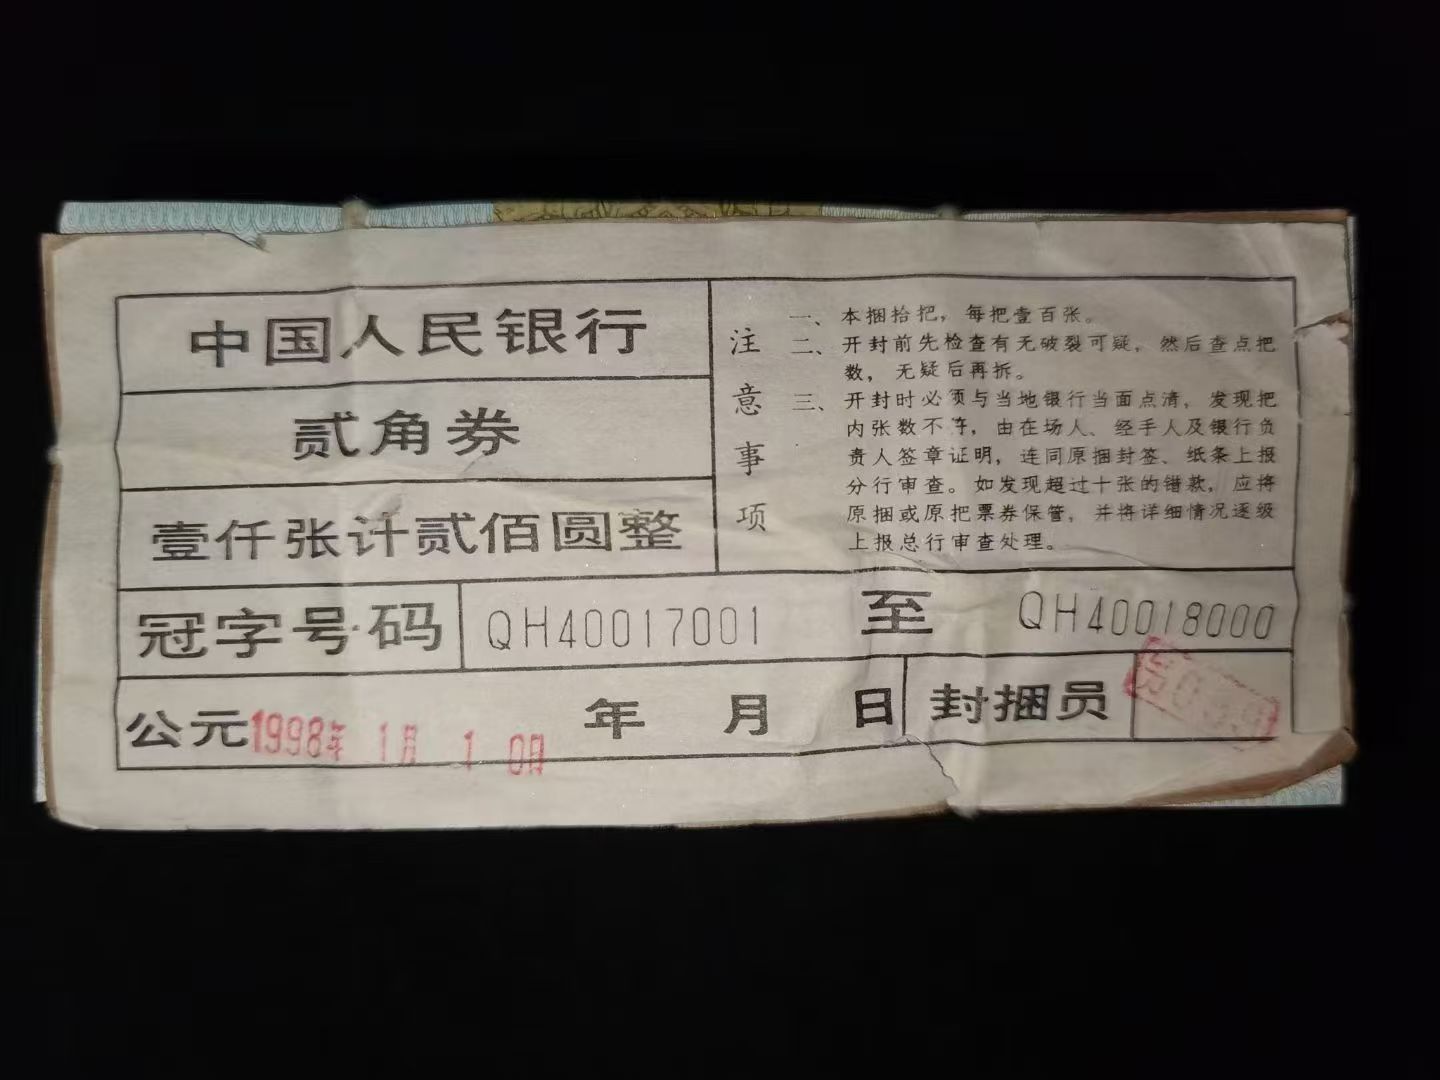 中国人民银行
贰角券
壹仟张计贰佰圆整
注意事项
一、本捆拾把，每把壹百张。
二、开封前先检查有无破裂可疑，然后查点把
数，无疑后再拆。
三、开封时必须与当地银行当面点清，发现把
内张数不符，由在场人、经手人及银行负
责人签章证明，连同原捆封签、纸条上报
分行审查。如发现超过十张的错款，应将
原捆或原把票券保管，并将详细情况逐级
上报总行审查处理。
冠字号码 QH40017001 至 QH40018000
公元 1998年 1月 10日 年 月 日 封捆员